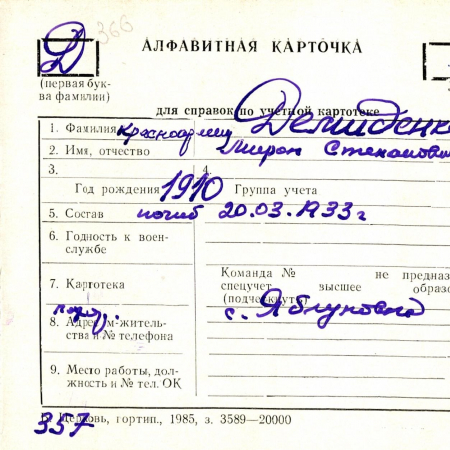 Д 366
АЛФАВИТНАЯ КАРТОЧКА
(первая бук-
ва фамилии)
для справок по учетной картотеке
1. Фамилия Красноармеец Демиденко
2. Имя, отчество Мирон Степанови
3. 4.
Год рождения 1910 Группа учета
5. Состав погиб 20.03.1933 г
6. Годность к воен-
службе
Команда № не предназ
7. Картотека спецучет высшее образо
(подчеркнуть)
8. Адрес м-житель- с. Яблуновка
ства и № телефона
9. Место работы, дол-
жность и № тел. ОК
357
Церковь, гортип., 1985, з. 3589—20000